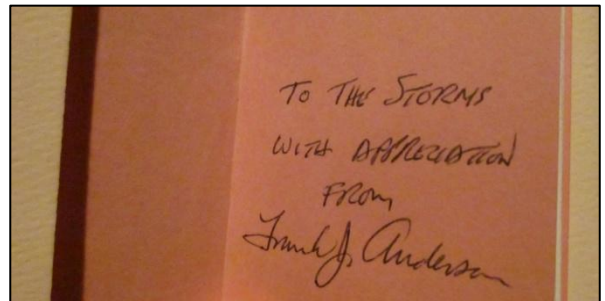 TO THE STORMS
WITH APPRECIATION
FROM
Frank J. Anderson